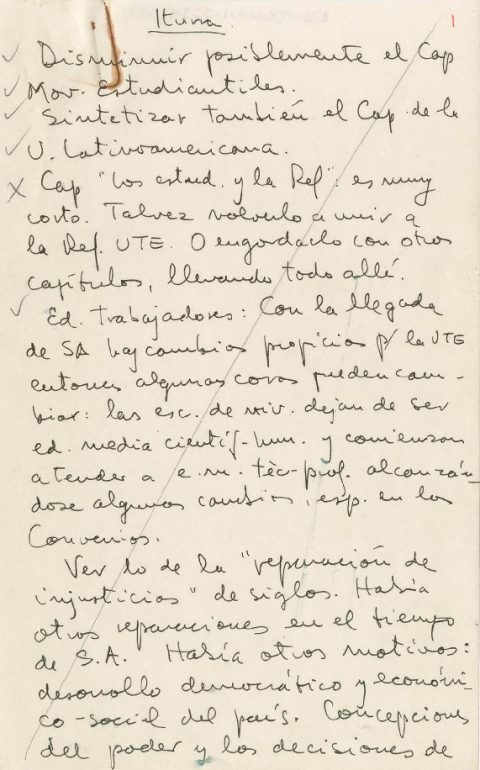 Iturra
1
Disminuir posiblemente el Cap
Mov. Estudiantiles.
Sintetizar también el Cap. de la
U. Latinoamericana.
X Cap "Los estud. y la Ref": es muy
corto. Talvez volverlo a unir a
la Ref. UTE. O engordarlo con otros
capítulos, llevando todo allá.
Ed. Trabajadores: Con la llegada
de SA hay cambios propicios p/ la UTE
entonces algunas cosas pueden cam-
biar: las esc. de niv. dejan de ser
ed. media científ-hum. y comienzan
a tender a e.m. tèc-prof. alcanzán-
dose algunos cambios, esp. en los
Convenios.
Ver lo de la "reparación de
injusticias" de siglos. Había
otras reparaciones en el tiempo
de S.A. Había otros motivos:
desarrollo democrático y económi-
co-social del país. Concepciones
del poder y las decisiones de